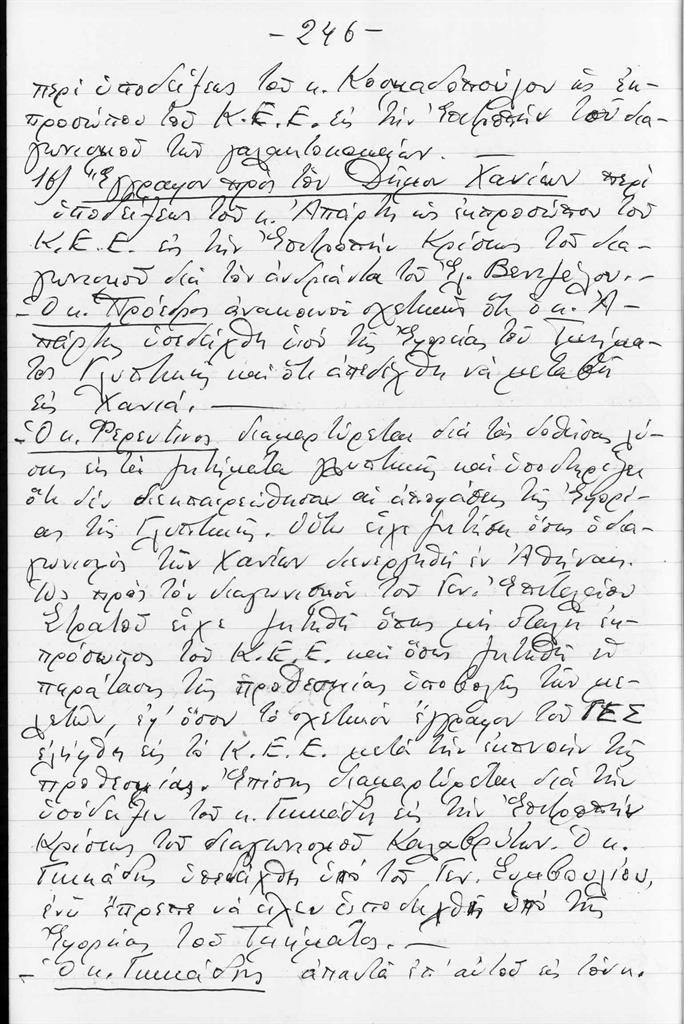 -246-
περί ὑποδείξεως τοῦ κ. Κοσμαδοπούλου ὡς ἐκ-
προσώπου τοῦ Κ.Ε.Ε. εἰς τήν Ἐπιτροπήν τοῦ δια-
γωνισμοῦ τῶν γαλακτοκομείων. —
16) Ἔγγραφον πρός τόν Δῆμον Χανίων περί
ὑποδείξεως τοῦ κ. Ἀπάρτη ὡς ἐκπροσώπου τοῦ
Κ.Ε.Ε. εἰς τήν Ἐπιτροπήν Κρίσεως τοῦ δια-
γωνισμοῦ διά τόν ἀνδριάντα τοῦ Ἐλ. Βενιζέλου.-
- Ὁ κ. Πρόεδρος ἀνακοινοῖ σχετικῶς ὅτι ὁ κ. Ἀ-
πάρτης ὑπεδείχθη ὑπό τῆς Ἐφορείας τοῦ Τμήμα-
τος Γλυπτικῆς καί ὅτι ἀπεδέχθη νά μεταβῆ
εἰς Χανιά. —
- Ὁ κ. Φερεντῖνος διαμαρτύρεται διά τάς δοθείσας λύ-
σεις εἰς τά ζητήματα γλυπτικῆς καί ὑποστηρίζει
ὅτι δέν διεκπεραιώθησαν αἱ ἀποφάσεις τῆς Ἐφορεί-
ας τῆς Γλυπτικῆς. Οὕτω εἶχε ζητήσει ὅπως ὁ δια-
γωνισμός τῶν Χανίων διενεργηθῆ ἐν Ἀθήναις.
Ὡς πρός τόν διαγωνισμόν τοῦ Γεν. Ἐπιτελείου
Στρατοῦ εἶχε ζητηθῆ ὅπως μή σταλῆ ἐκ-
πρόσωπος τοῦ Κ.Ε.Ε. καί ὅπως ζητηθῆ ἡ
παράτασις τῆς προθεσμίας ὑποβολῆς τῶν με-
λετῶν, ἐφ' ὅσον τό σχετικόν ἔγγραφον τοῦ ΓΕΣ
ἐλήφθη εἰς τό Κ.Ε.Ε. μετά τήν ἐκπνοήν τῆς
προθεσμίας. Ἐπίσης διαμαρτύρεται διά τήν
ὑπόδειξιν τοῦ κ. Γκικάδη εἰς τήν Ἐπιτροπήν
Κρίσεως τοῦ διαγωνισμοῦ Καλαβρύτων. Ὁ κ.
Γκικάδης ὑπεδείχθη ὑπό τοῦ Γεν. Συμβουλίου,
ἐνῶ ἔπρεπε νά εἶχεν ὑποδειχθῆ ὑπό τῆς
Ἐφορείας τοῦ Τμήματος. —
- Ὁ κ. Γκικάδης ἀπαντᾶ ἐπ' αὐτοῦ εἰς τόν κ.